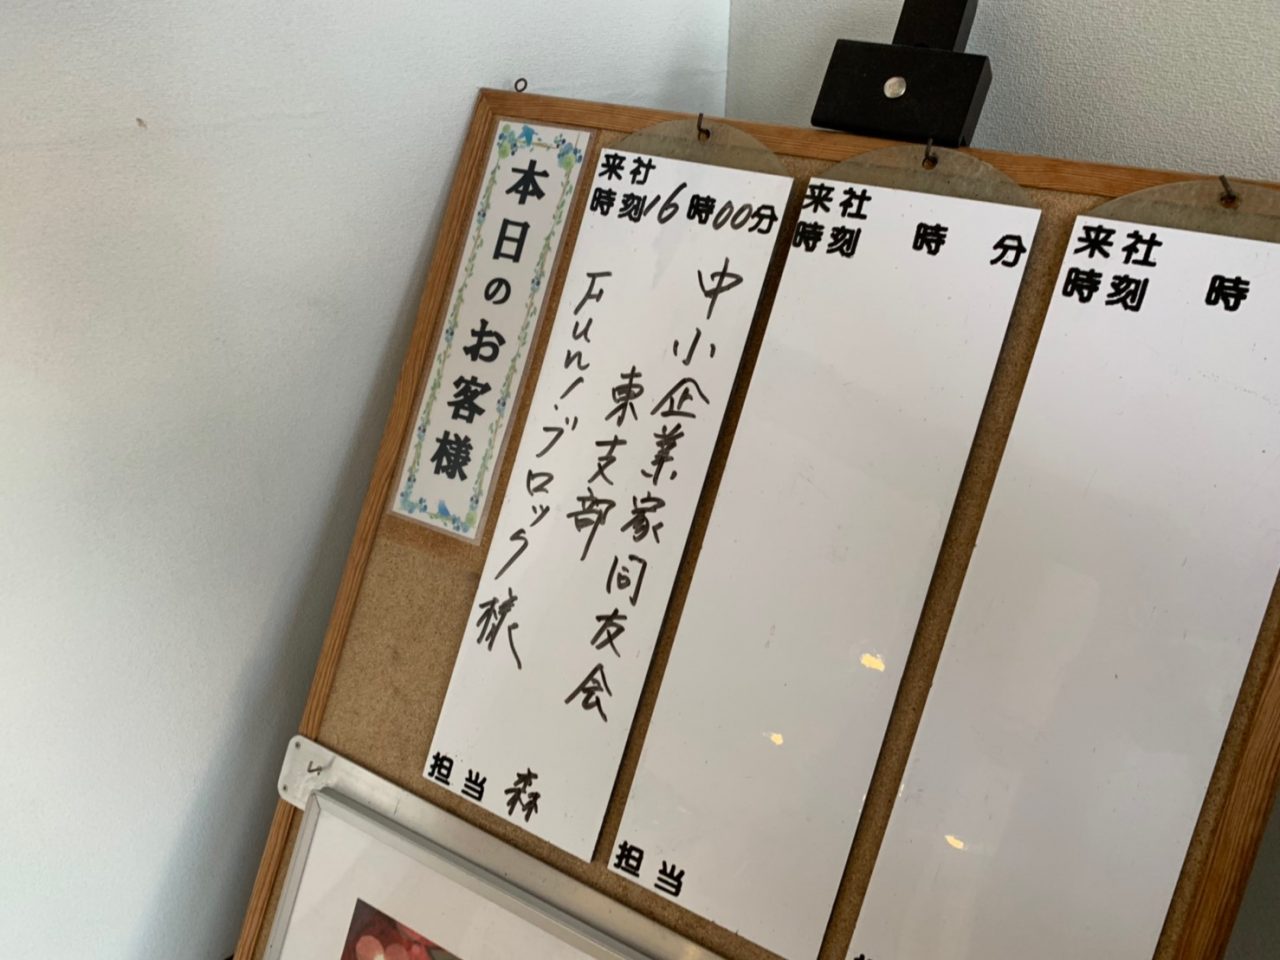 本日のお客様
来社
時刻16時00分
中小企業家同友会
東支部
Fun!ブロック様
担当 森
来社
時刻 時 分
担当
来社
時刻 時